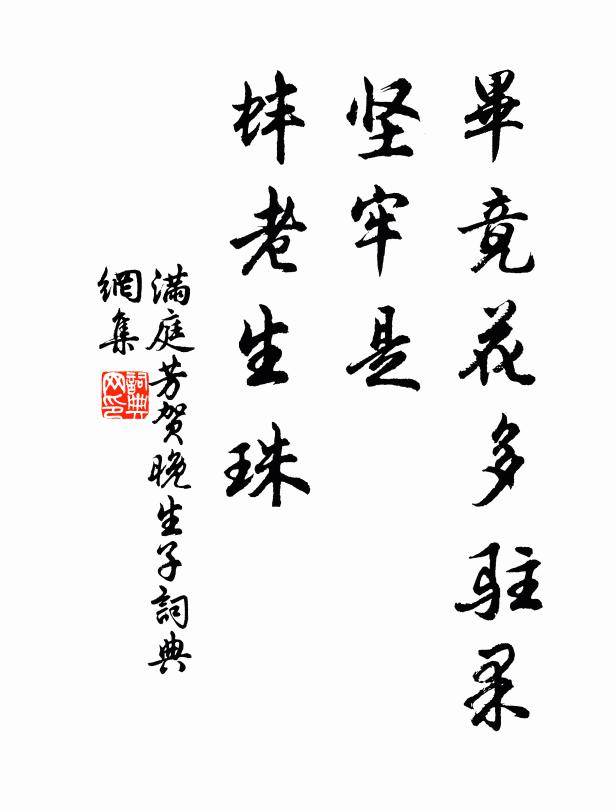 畢竟花多駐果
坚牢是
蚌老生珠
满庭芳贺晚生子詞典
網集
詞典
网印